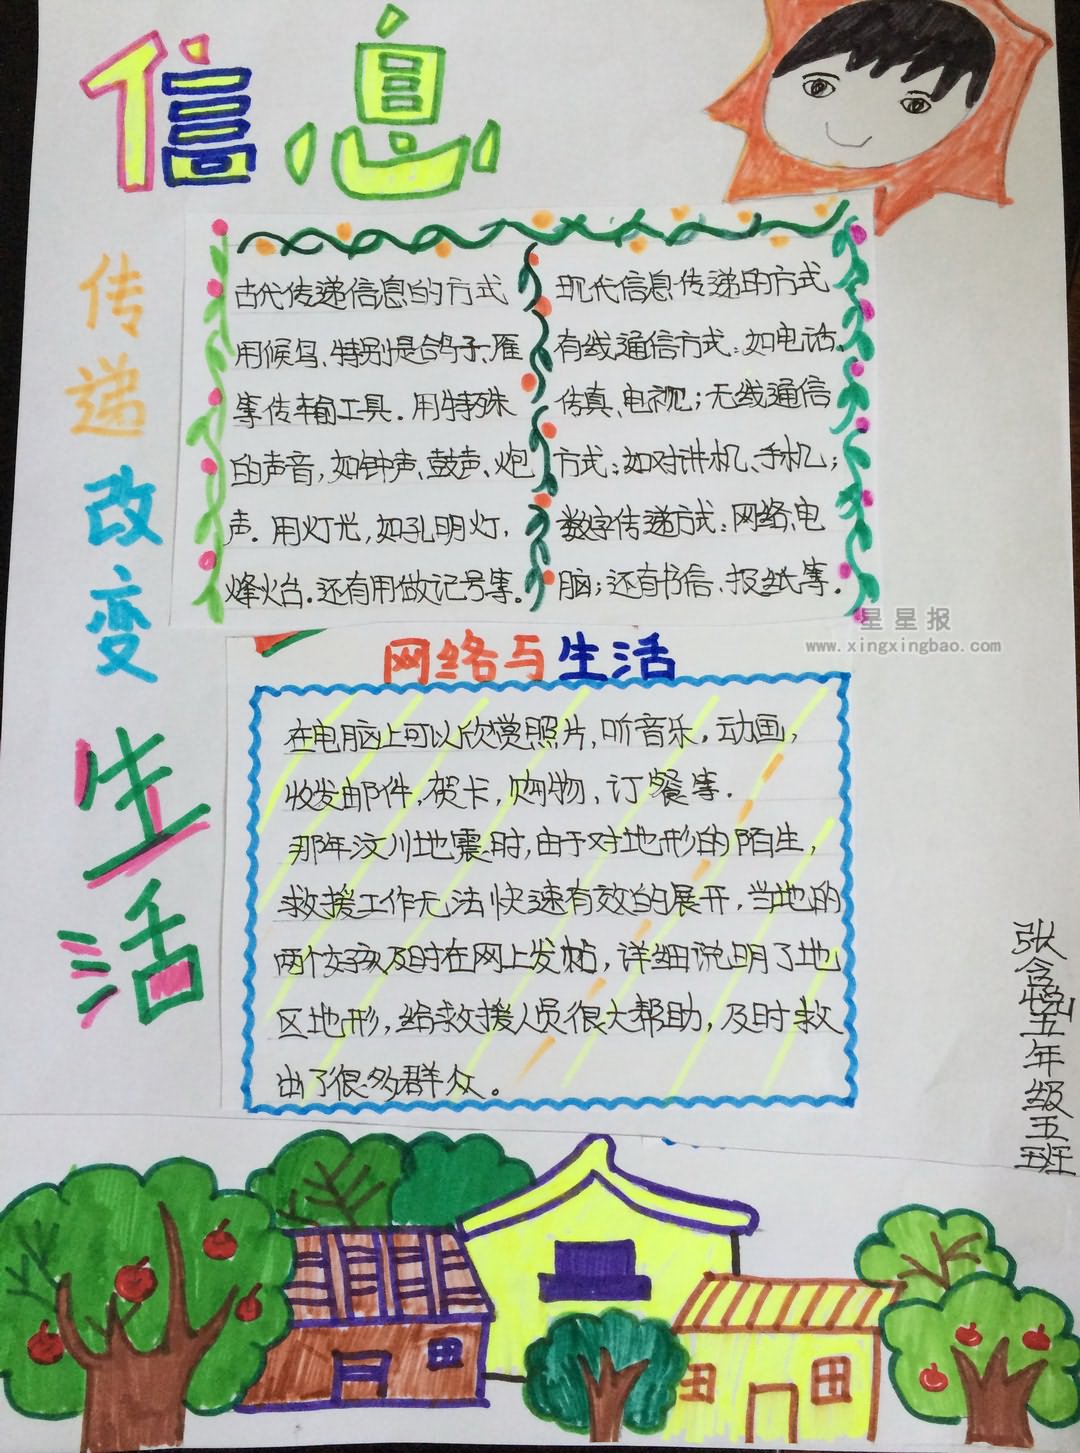 信息
传递改变生活
古代传递信息的方式
用候鸟、特别是鸽子、雁
等传输工具．用特殊
的声音，如钟声、鼓声、炮
声．用灯光，如孔明灯，
烽火台．还有用做记号等．
现代信息传递的方式
有线通信方式：如电话、
传真、电视；无线通信
方式：如对讲机、手机；
数字传递方式：网络、电
脑；还有书信、报纸等．
星星报
www.xingxingbao.com
网络与生活
在电脑上可以欣赏照片，听音乐．动画，
收发邮件，贺卡，购物、订餐等．
那年汶川地震时，由于对地形的陌生，
救援工作无法快速有效的展开，当地的
两个女孩及时在网上发帖，详细说明了地
区地形，给救援人员很大帮助，及时救
出了很多群众。
张含悦五年级五班